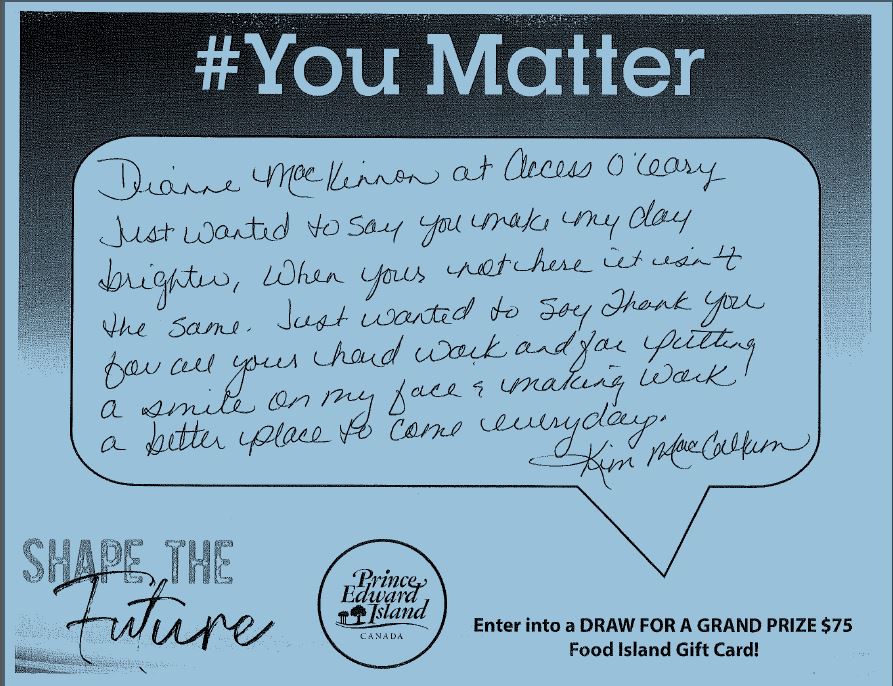 #You Matter
Dianne MacKinnon at Access O'Leary
Just wanted to say you make my day
brighter, When yours not here it isn't
the same. Just wanted to say Thank you
for all your hard work and for putting
a smile on my face & making work
a better place to come everyday.
Kim MacCallum
SHAPE THE
Future
Prince
Edward
Island
CANADA
Enter into a DRAW FOR A GRAND PRIZE $75
Food Island Gift Card!